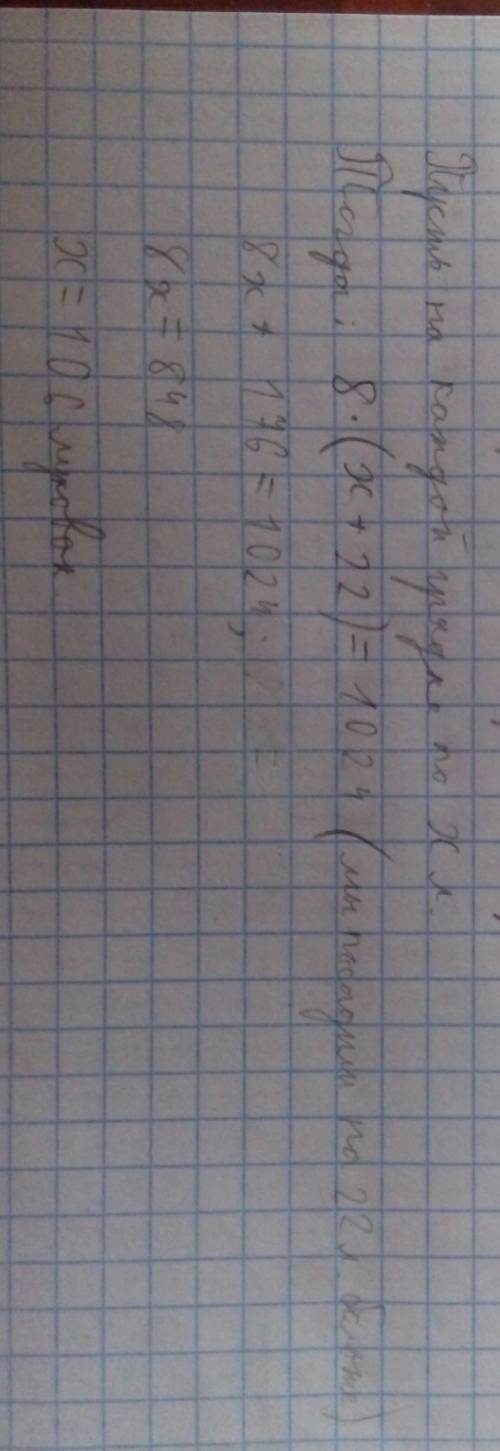 Пусть на каждой грядке по x л.
Тогда: 8·(x+22)=1024 (мы посадим по 22 л. больше)
8x+ 176=1024;
8x=848
x=106 луковок.